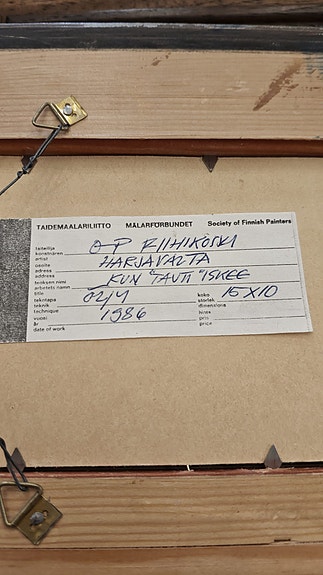 TAIDEMAALARILIITTO MÅLARFÖRBUNDET Society of Finnish Painters
taiteilija
konstnären O P RIIHIKOSKI
artist
osoite HARJAVALTA
adress
address
teoksen nimi KUN "TAUTI" ISKEE
arbetets namn
title
tekotapa ÖLJY koko 15X10
teknik storlek
technique dimensions
vuosi 1986 hinta
år pris
date of work price